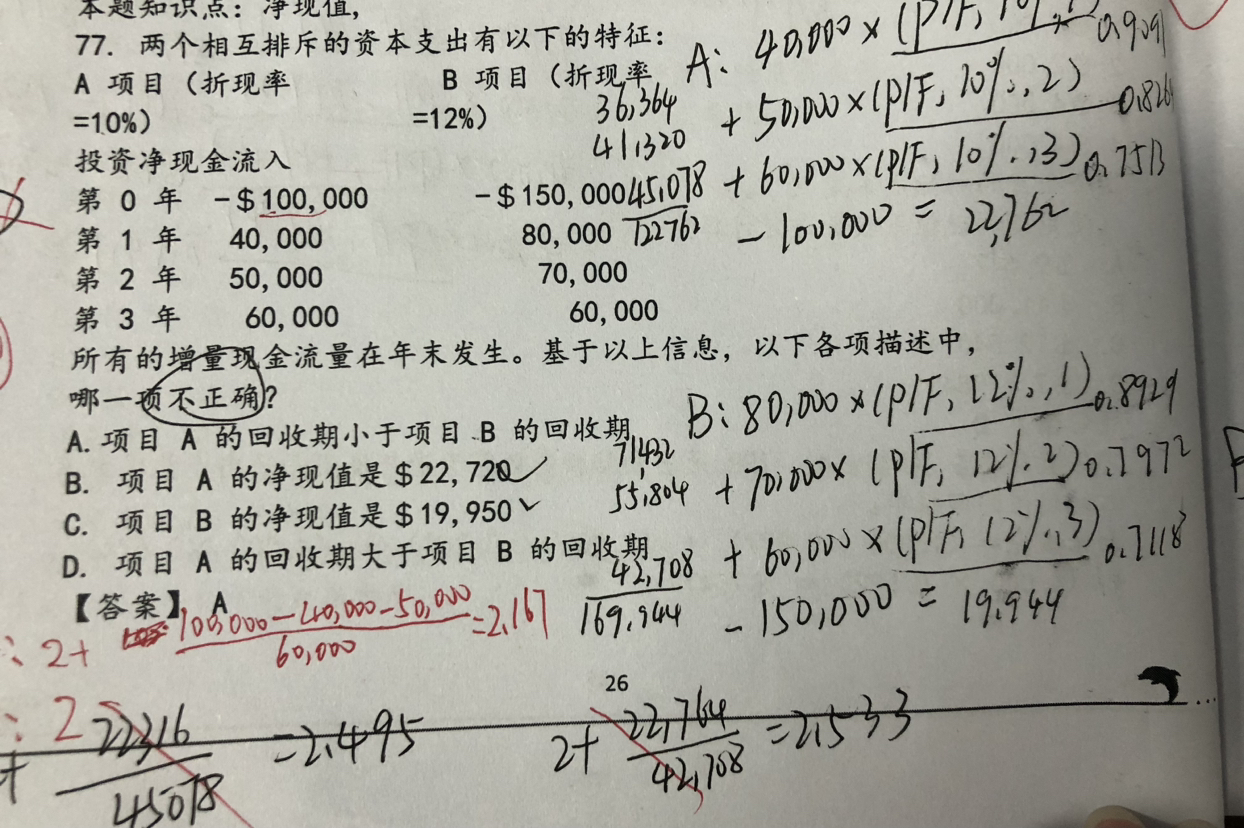 本题知识点：净现值，
77. 两个相互排斥的资本支出有以下的特征：
A 项目（折现率 B 项目（折现率
=10%） =12%）
投资净现金流入
第 0 年 -$100,000 -$150,000
第 1 年 40,000 80,000
第 2 年 50,000 70,000
第 3 年 60,000 60,000
所有的增量现金流量在年末发生。基于以上信息，以下各项描述中，
哪一项不正确?
A. 项目 A 的回收期小于项目 B 的回收期
B. 项目 A 的净现值是$22,720
C. 项目 B 的净现值是$19,950
D. 项目 A 的回收期大于项目 B 的回收期
【答案】A
A: 40,000×(P/F, 10%,1) 0.9091
+ 50,000×(P/F, 10%, 2) 0.8264
+ 60,000×(P/F, 10%, 3) 0.7513
- 100,000 = 22,762
36,364
41,320
45,078
122762
B: 80,000×(P/F, 12%, 1) 0.8929
+ 70,000×(P/F, 12%, 2) 0.7972
+ 60,000×(P/F, 12%, 3) 0.7118
- 150,000 = 19,944
71,432
55,804
42,708
169,944
: 2+ 100,000-40,000-50,000
60,000
=2.167
26
: 2
+ 22316
45078
=2.495
2+ 22,764
42,708
=2.533